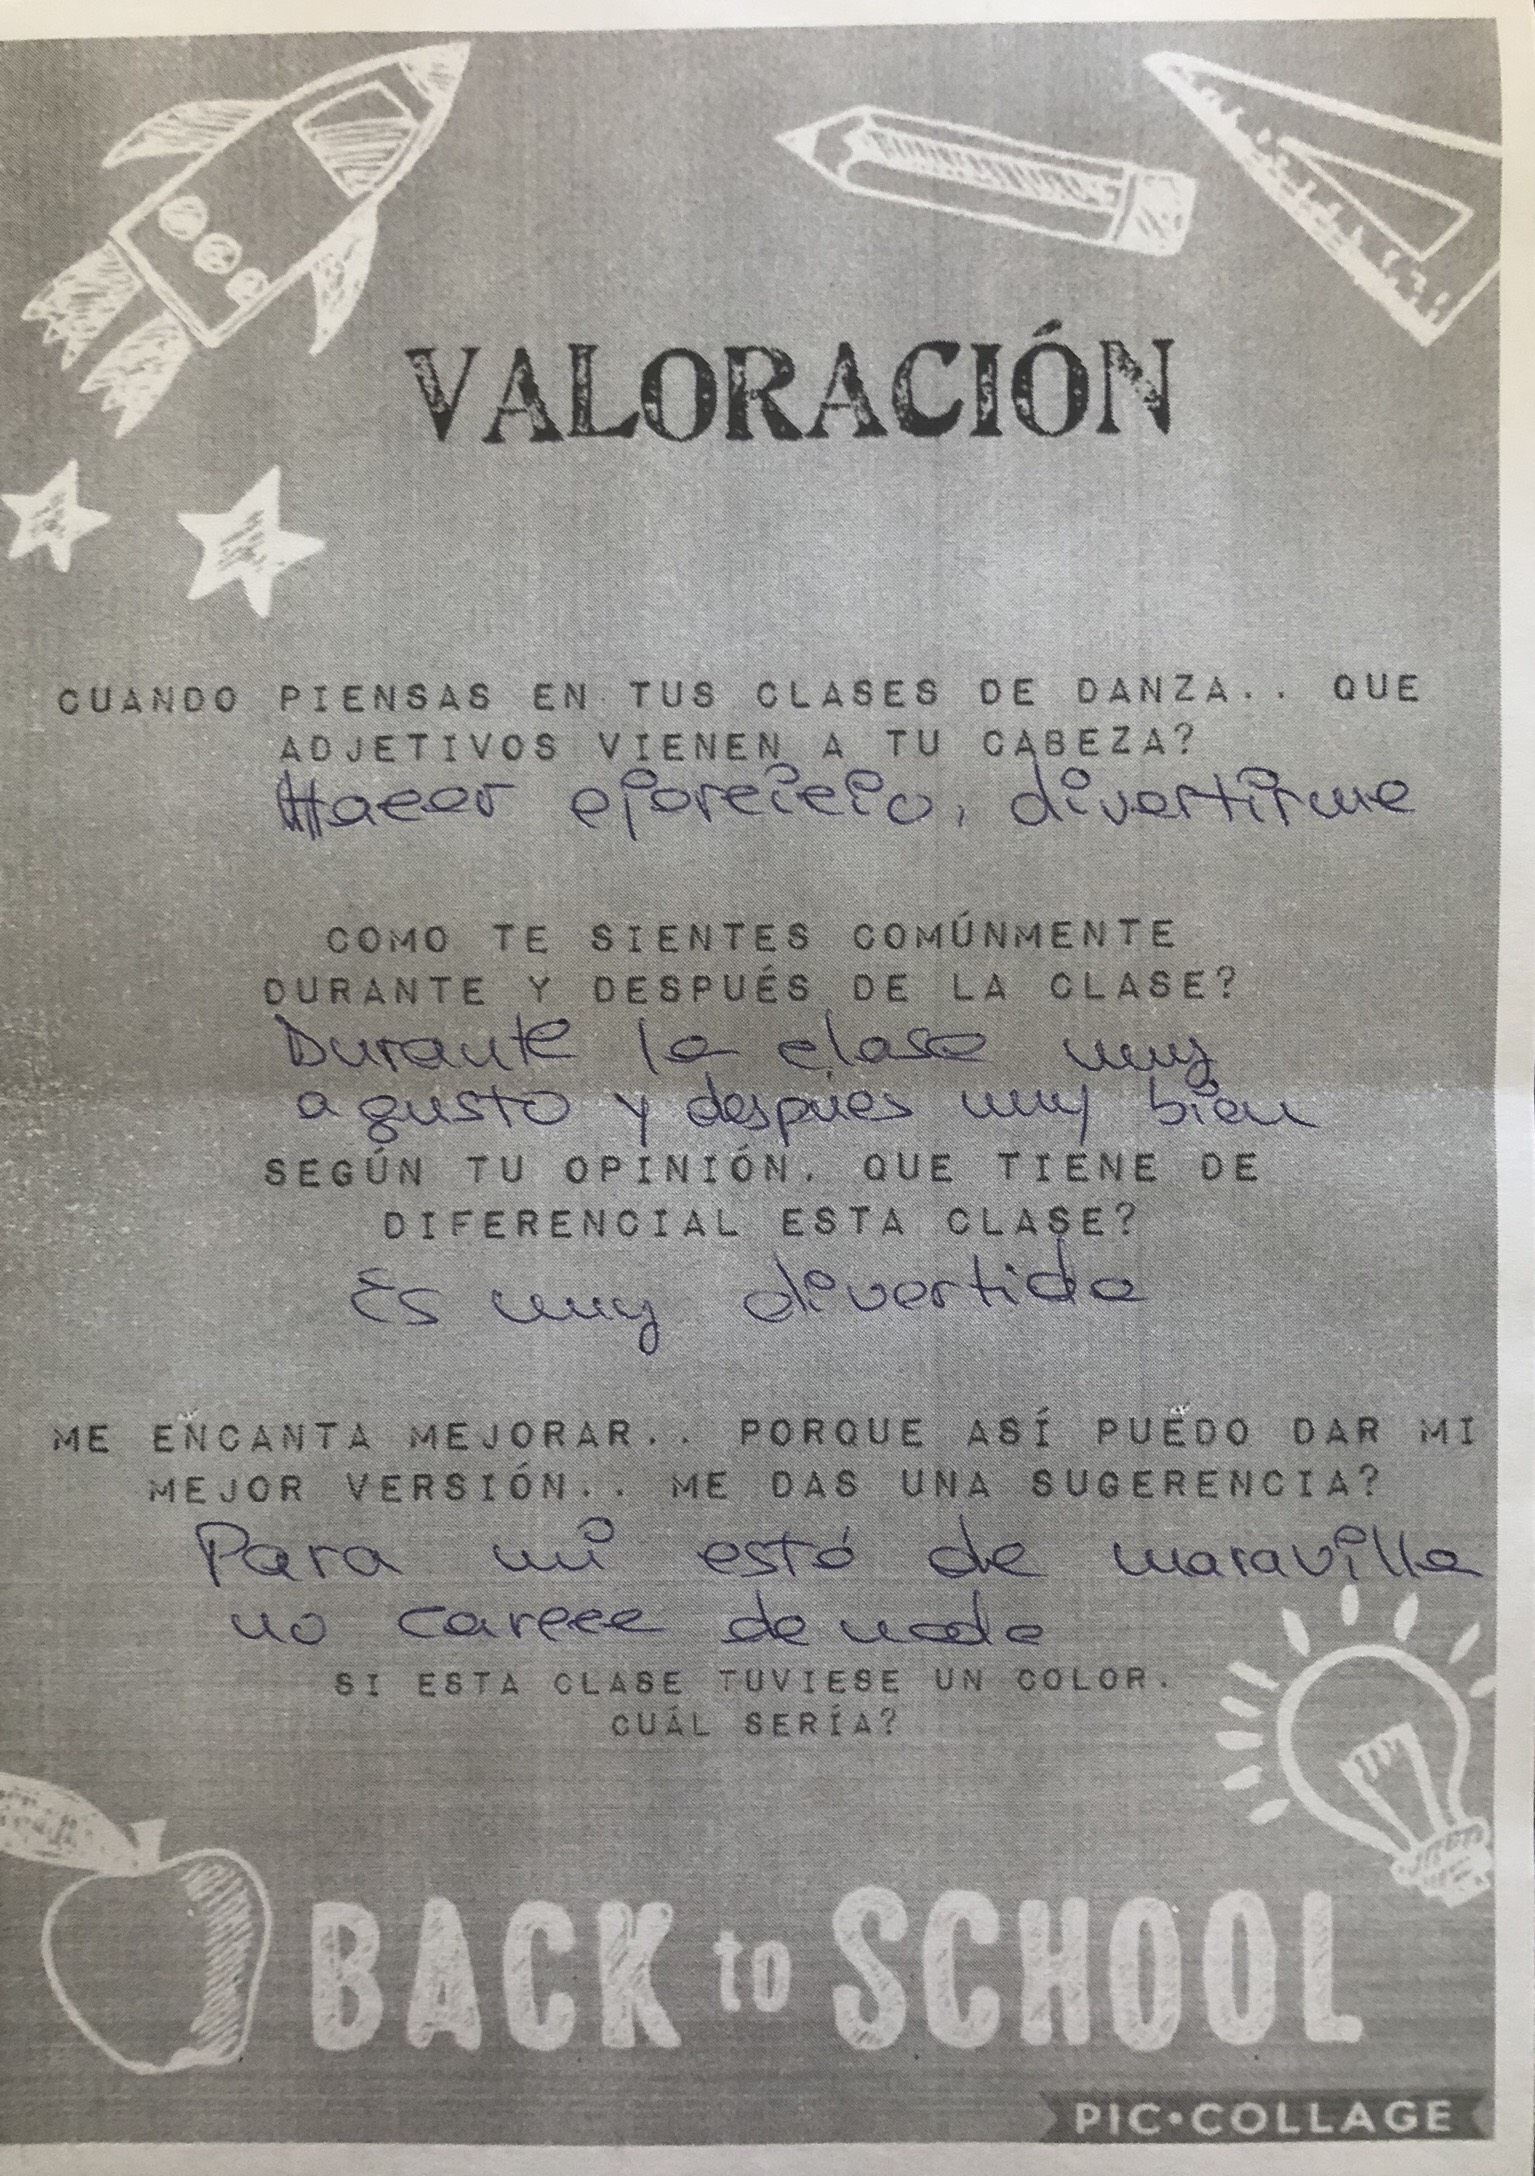 VALORACIÓN
CUANDO PIENSAS EN TUS CLASES DE DANZA.. QUE
ADJETIVOS VIENEN A TU CABEZA?
Hacer ejercicio, divertirme
COMO TE SIENTES COMÚNMENTE
DURANTE Y DESPUÉS DE LA CLASE?
Durante la clase muy
a gusto y despúes muy bien
SEGÚN TU OPINIÓN, QUE TIENE DE
DIFERENCIAL ESTA CLASE?
Es muy divertida
ME ENCANTA MEJORAR.. PORQUE ASÍ PUEDO DAR MI
MEJOR VERSIÓN.. ME DAS UNA SUGERENCIA?
Para mi está de maravilla
no carece de nada
SI ESTA CLASE TUVIESE UN COLOR.
CUÁL SERÍA?
BACK to SCHOOL
PIC•COLLAGE